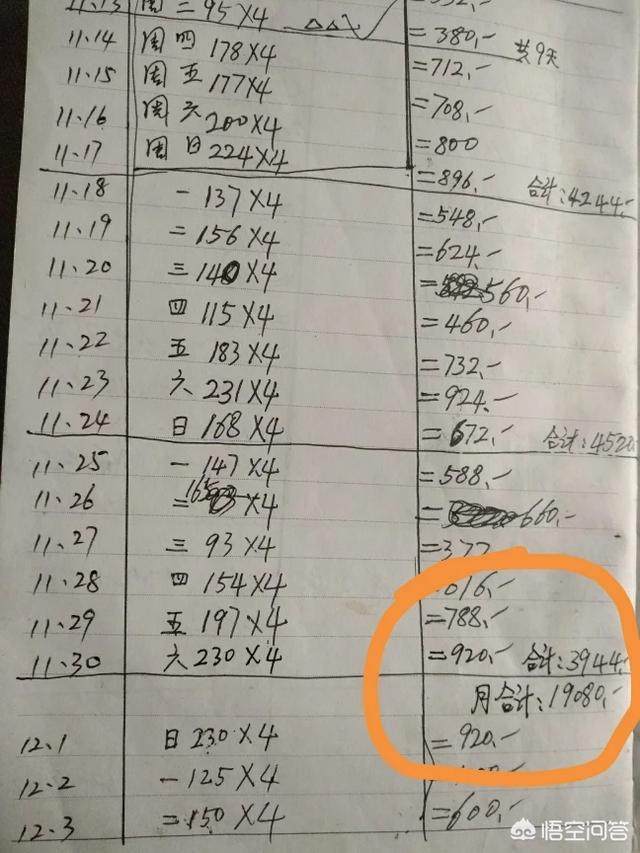 11.13 周三 95×4 =380,- 共9天
11.14 周四 178×4 =712,-
11.15 周五 177×4 =708,-
11.16 周六 200×4 =800
11.17 周日 224×4 =896,- 合计:4244,-
11.18 一 137×4 =548,-
11.19 二 156×4 =624,-
11.20 三 140×4 =560,-
11.21 四 115×4 =460,-
11.22 五 183×4 =732,-
11.23 六 231×4 =924,-
11.24 日 168×4 =672,- 合计:4520,-
11.25 一 147×4 =588,-
11.26 二 165×4 =660,-
11.27 三 93×4
11.28 四 154×4 616,-
11.29 五 197×4 =788,-
11.30 六 230×4 =920,- 合计:3944,-
月合计:19080,-
12.1 日 230×4 =920,-
12.2 一 125×4
12.3 二 150×4 =600,-
悟空问答